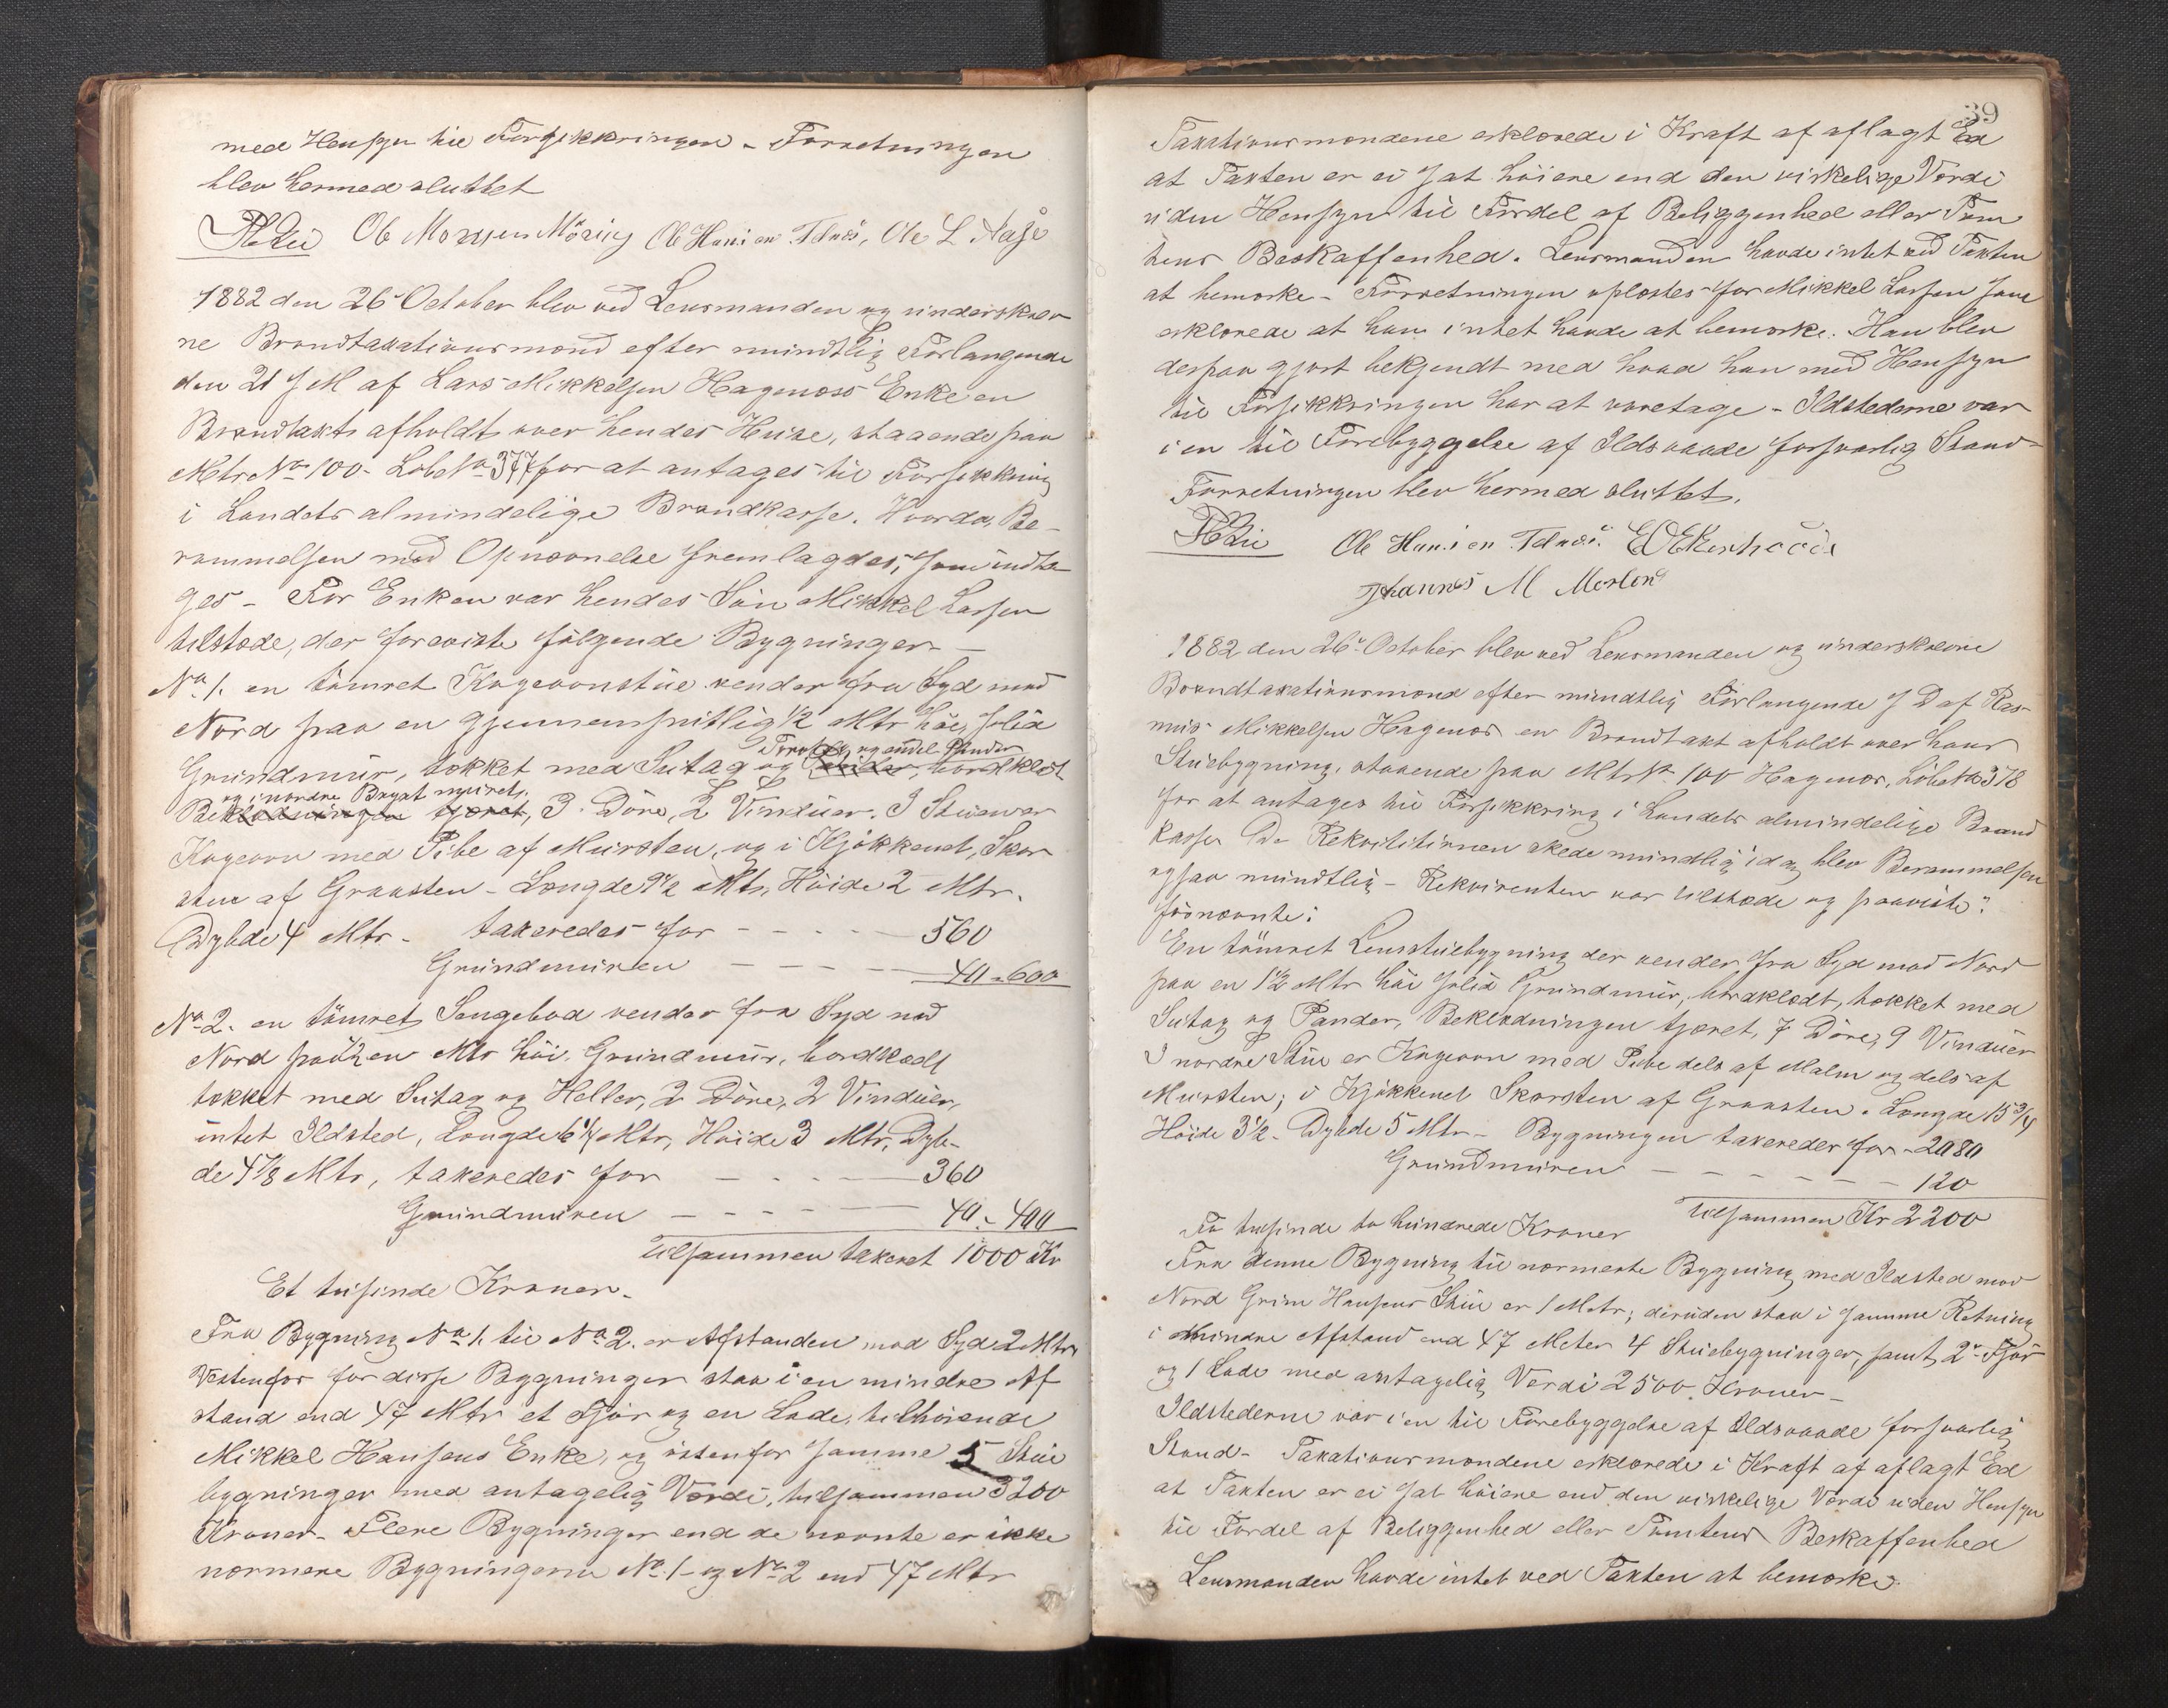 med Hensyn til Forsikkringen - Forretningen
blev hermed sluttet
Ole Monsen Möring Ole Hansen Ole L Aase
1882 den 26. October blev ved Lensmanden og underskrev-
ne Brandtaxationsmænd efter mundtlig Forlangende
den 21 d M af Lars Mikkelsen Hagenæss Enke en
Brandtakt afholdt over hendes Huse, staaende paa
Mtr No 100. Löbe No 377 for at antages til Forsikkring
i Landets almindelige Brandkasse. Hvorda Be-
rammelsen med Opnævnelse fremlagdes, som indta-
ges - For Enken var hendes Sön Mikkel Larsen
tilstede, der foreviste fölgende Bygninger -
No 1. en tömret Kogeovnstue vender fra Syd mod
Nord paa en gjennemsnitlig 1/2 Mtr höi, solid
Torvtag og endel Pander
Grundmur, tækket med Sutag og Heller, bordklædt
og i nordre nymuret,
Beklædningen tjæret, 3 Döre, 2 Vinduer. I Stuen var
Kogeovn med Pibe af Mursten, og i Kjökkenet, Skor-
sten af Graasten - Længde 9 1/2 Mtr, Höide 2 Mtr.
Dybde 4 Mtr - taxeredes for - - - - 560
Grundmuren - - - - 40 - 600
No 2. en tömret Sengebod vender fra Syd mod
Nord paa 1/2 en Mtr höi, Grundmur, bordklædt
tækket med Sutag og Heller, 2 Döre, 2 Vinduer,
intet Ildsted, Længde 6 1/4 Mtr, Höide 3 Mtr, Dyb-
de 4 7/8 Mtr, taxeredes for - - - 360
Grundmuren - - - - 40 - 400
Tilsammen taxeret 1000 Kr
Et tusinde Kroner.
Fra Bygning No 1. til No 2. er Afstanden mod Syd 2 Mtr.
Vestenfor for disse Bygninger staa i en mindre Af-
stand end 47 Mtr et Fjös og en Lade, tilhörende
Mikkel Hansens Enke, og östenfor samme 5 Stue-
bygninger med antagelig Værdi, tilsammen 3200
Kroner. Flere Bygninger end de nævnte er ikke
nærmere Bygningerne No 1 og No 2 end 47 Mtr
39
Taxationsmændene erklærede i Kraft af aflagt Ed
at Taxten er ei sat höiere end den virkelige Værdi
uden Hensyn til Fordel af Beliggenhed eller Tom-
tens Beskaffenhed. Lensmanden havde intet ved Taxten
at bemærke - Forretningen oplæstes for Mikkel Larsen som
erklærede at han intet havde at bemærke. Han blev
derpaa gjort bekjendt med hvad han med Hensyn
til Forsikkringen har at varetage - Ildstederne var
i en til Forebyggelse af Ildsvaade forsvarlig Stand -
Forretningen blev hermed sluttet.
Ole Hansen
Johannes M
1882 den 26. October blev ved Lensmanden og underskrevne
Brandtaxationsmænd efter mundtlig Forlangende s D af Ras-
mus Mikkelsen Hagenæs en Brandtaxt afholdt over hans
Stuebygning, staaende paa Mtr No 100 Hagenæs, Löbe No 378
for at antages til Forsikkring i Landets almindelige Brand-
kasse Da Rekvisitionen skede mundtlig idag blev Berammelsen
ogsaa mundtlig - Rekvirenten var tilstede og paaviste
:
En tömret Lensstuebygning der vender fra Syd mod Nord
paa en 1 1/2 Mtr höi solid Grundmur, bordklædt, tækket med
Sutag og Pander, Beklædningen tjæret, 7 Döre, 9 Vinduer
I nordre Stue er Kogeovn med Pibe dels af Malm og dels af
Mursten; i Kjökkenet Skorsten af Graasten. Længde 15 3/4
Höide 3 1/2 - Dybde 5 Mtr - Bygningen taxeredes for - 2080
Grundmuren - - - - - 120
Tilsammen Kr 2200
To tusinde to hundrede Kroner
Fra denne Bygning til nærmeste Bygning med Ildsted mod
Nord Grim Hansens Stue er 1 Mtr; desuden staa i samme Retning
i mindre Afstand end 47 Meter 4 Stuebygninger, samt 2 Fjös
og 1 Lade med antagelig Værdi 2500 Kroner -
Ildstederne var i en til Forebyggelse af Ildsvaade forsvarlig
Stand - Taxationsmændene erklærede i Kraft af aflagt Ed
at Taxten er ei sat höiere end den virkelige Værdi uden Hensyn
til Fordel af Beliggenhed eller Tomtens Beskaffenhed
Lensmanden havde intet ved Taxten at bemærke.